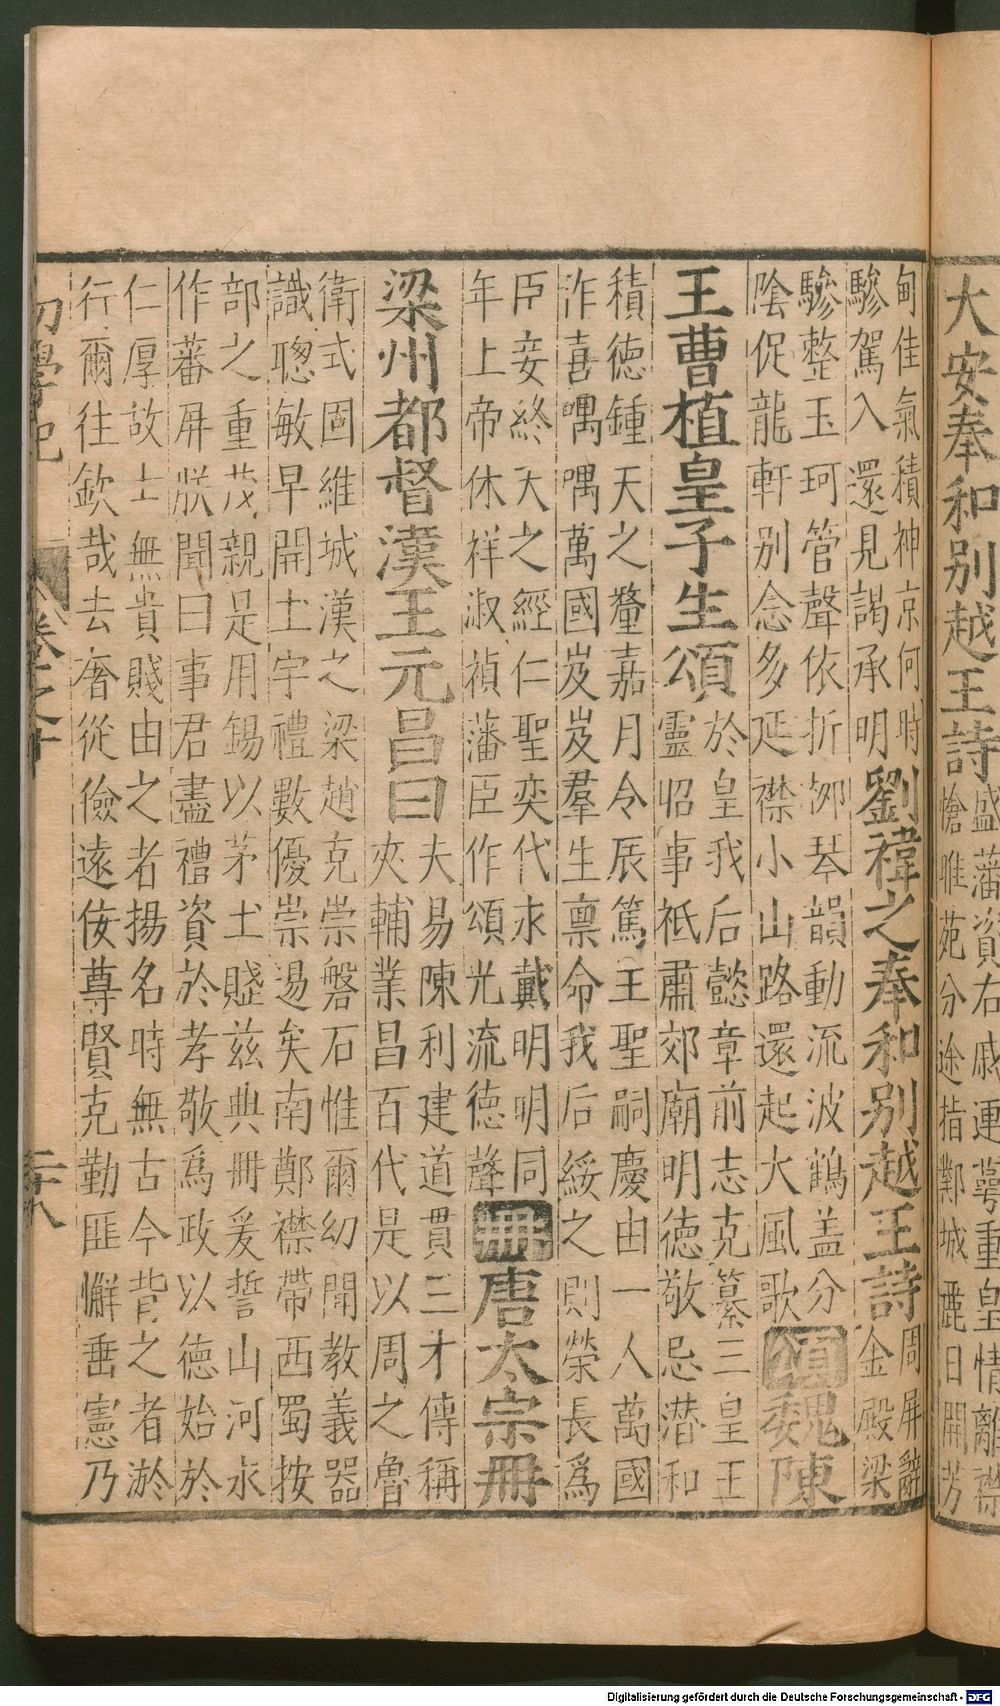 大安奉和别越王詩盛藩資右戚連萼重皇情離襟
愴睢苑分途指鄴城麗日開芳
甸佳氣積神京何時
驂駕入還見謁承明劉禕之奉和别越王詩周屏辭
金殿梁
驂整玉珂管聲依折栁琴韻動流波鶴盖分
陰促龍軒别念多延襟小山路還起大風歌頌魏陳
王曹植皇子生頌於皇我后懿章前志克纂三皇王
靈昭事祗肅郊廟明德敬忌潜和
積德鍾天之釐嘉月令辰篤王聖嗣慶由一人萬國
作喜喁喁萬國岌岌羣生禀命我后綏之則榮長爲
臣妾終天之經仁聖奕代永戴明明同
年上帝休祥淑禎藩臣作頌光流德聲冊唐太宗冊
梁州都督漢王元昌曰夫易陳利建道貫三才傳稱
夾輔業昌百代是以周之魯
衛式固維城漢之梁趙克崇磐石惟爾幼聞教義器
識聰敏早開土宇禮數優崇逷矣南鄭襟帶西蜀按
部之重茂親是用錫以茅土賦兹典冊爰誓山河永
作蕃屏朕聞曰事君盡禮資於孝敬爲政以德始於
仁厚故士無貴賤由之者揚名時無古今背之者淤
行爾往欽哉去奢從儉遠佞尊賢克勤匪懈垂憲乃
初學記
卷之十
二十八
Digitalisierung gefördert durch die Deutsche Forschungsgemeinschaft - DFG